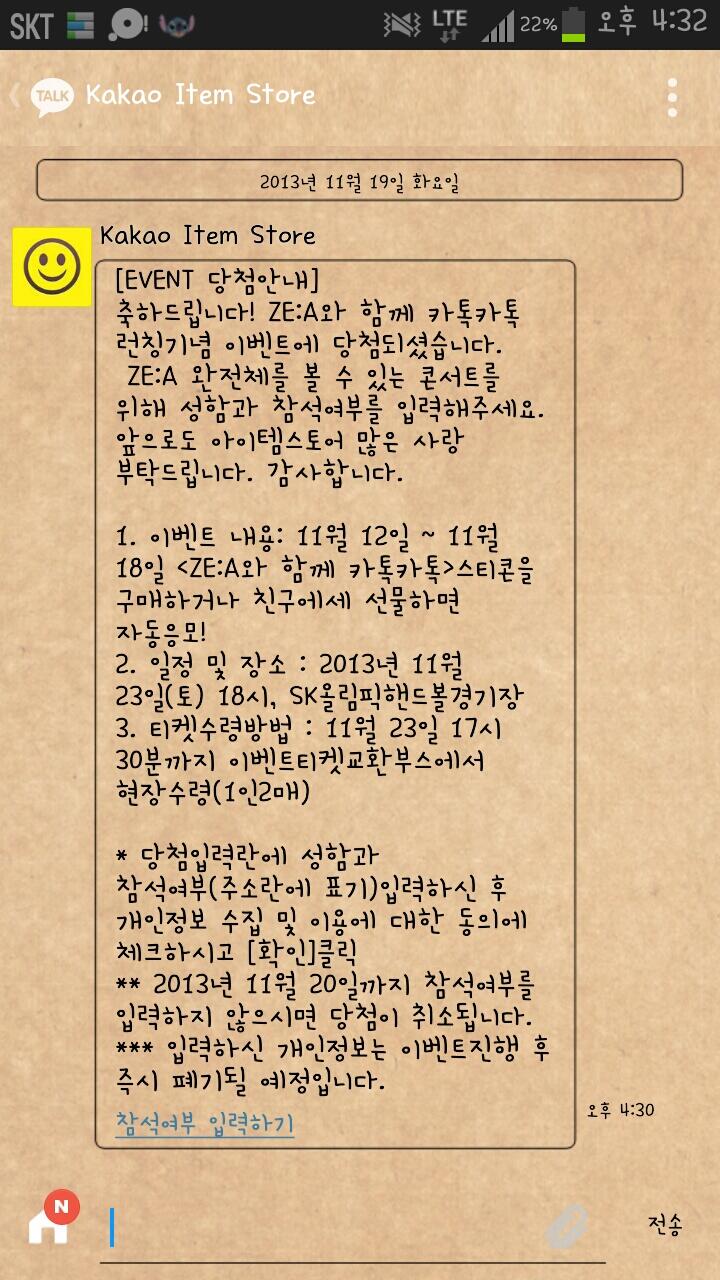 SKT LTE 22% 오후 4:32
TALK Kakao Item Store
2013년 11월 19일 화요일
Kakao Item Store
[EVENT 당첨안내]
축하드립니다! ZE:A와 함께 카톡카톡
런칭기념 이벤트에 당첨되셨습니다.
ZE:A 완전체를 볼 수 있는 콘서트를
위해 성함과 참석여부를 입력해주세요.
앞으로도 아이템스토어 많은 사랑
부탁드립니다. 감사합니다.
1. 이벤트 내용: 11월 12일 ~ 11월
18일 <ZE:A와 함께 카톡카톡>스티콘을
구매하거나 친구에세 선물하면
자동응모!
2. 일정 및 장소 : 2013년 11월
23일(토) 18시, SK올림픽핸드볼경기장
3. 티켓수령방법 : 11월 23일 17시
30분까지 이벤트티켓교환부스에서
현장수령(1인2매)
* 당첨입력란에 성함과
참석여부(주소란에 표기)입력하신 후
개인정보 수집 및 이용에 대한 동의에
체크하시고 [확인]클릭
** 2013년 11월 20일까지 참석여부를
입력하지 않으시면 당첨이 취소됩니다.
*** 입력하신 개인정보는 이벤트진행 후
즉시 폐기될 예정입니다.
참석여부 입력하기
오후 4:30
N
전송